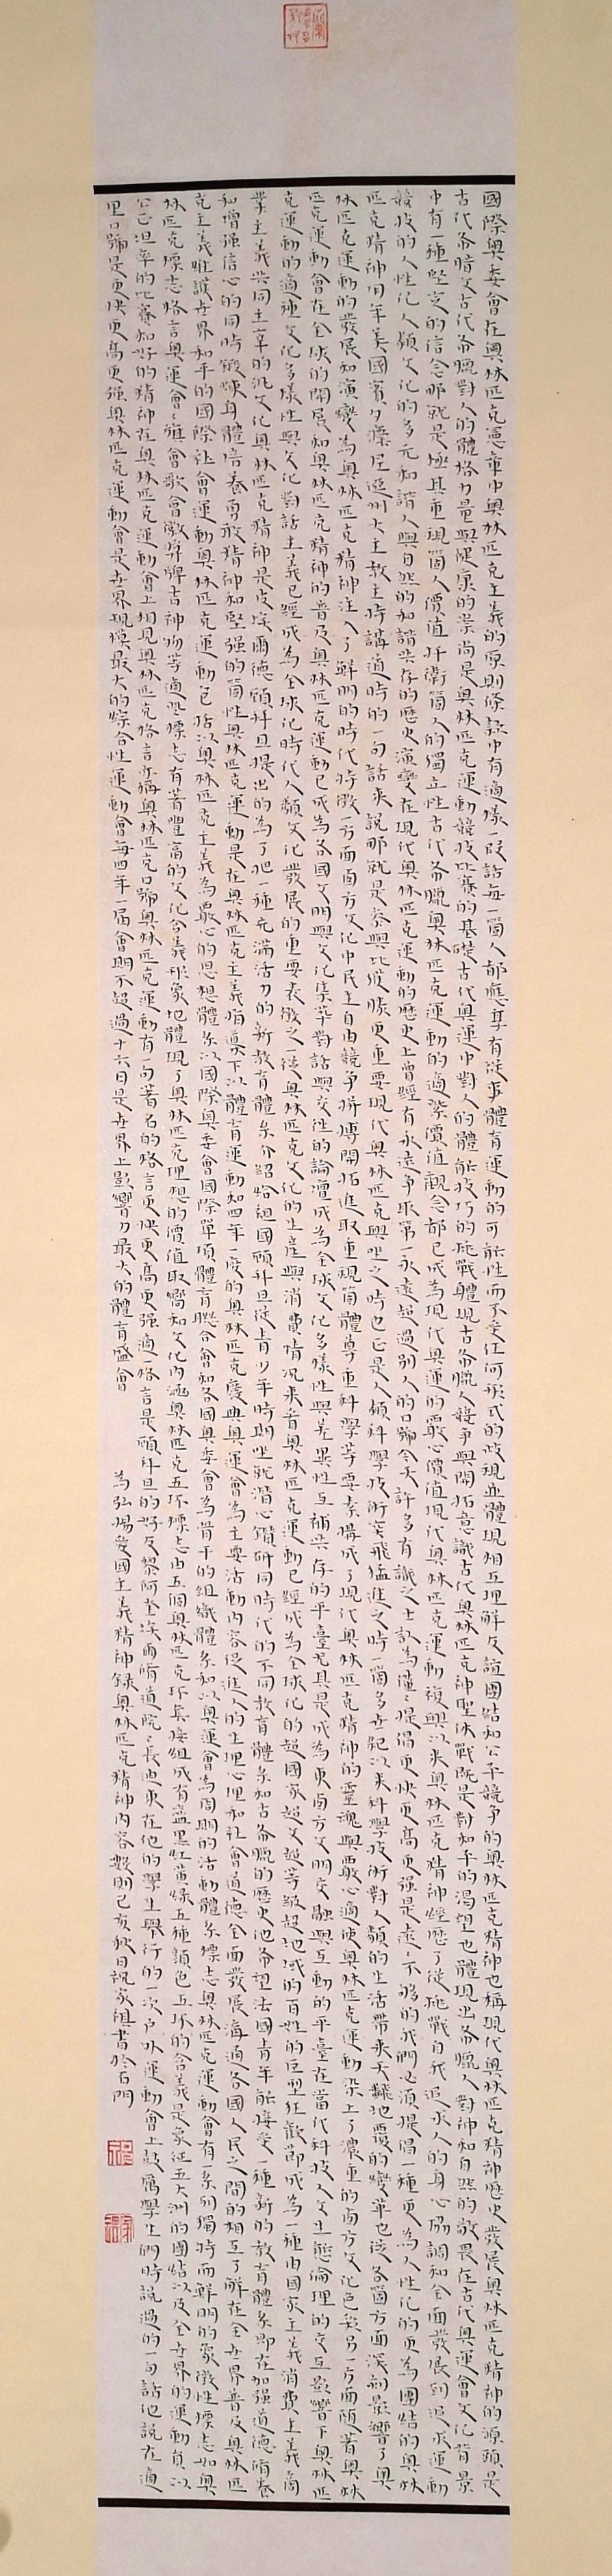 國際奧委會在奧林匹克憲章中奧林匹克主義的原則條款中有這樣一段話每一箇人都應享有從事體育運動的可能性而不受任何形式的歧視並體現相互理解友誼團結和公平競爭的奧林匹克精神也稱現代奧林匹克精神歷史發展奧林匹克精神的源頭是
古代希臘文古代希臘對人的體格力量與健康的崇尚是奧林匹克運動競技比賽的基礎古代奧運中對人的體能技巧的挑戰體現古希臘人競爭與開拓意識古代奧林匹克神聖休戰既是對和平的渴望也體現出希臘人對神和自然的敬畏在古代奧運會文化背景
中有一種堅定的信念那就是極其重視箇人價值扞衛箇人的獨立性古代希臘奧林匹克運動的這棨價值觀念都已成為現代奧運的覈心價值現代奧林匹克運動複興以來奧林匹克精神經歷了從挑戰自我追求人的身心協調和全面發展到追求運動
競技的人性化人類文化的多元和諧人與自然的和諧共存的歷史演變在現代奧林匹克運動的歷史上曾經有永遠爭取第一永遠超過別人的口號今天許多有識之士認為僅僅提倡更快更高更強是遠遠不够的我們必須提倡一種更為人性化的更為團結的奧林
匹克精神用年美國賓夕凡尼亞州大主教主持講道時的一句話來說那就是參與比獲勝更重要現代奧林匹克興起之時也正是人類科學技術突飛猛進之時一箇多世紀以來科學技術對人類的生活帶來天翻地覆的變革也從各箇方面深刻影響了奧
林匹克運動的發展和演變為奧林匹克精神注入了鮮明的時代特徵一方面西方文化中民主自由競爭拼搏開拓進取重視箇體尊重科學等要素構成了現代奧林匹克精神的靈魂與覈心這使奧林匹克運動染上了濃重的西方文化色彩另一方面隨着奧林
匹克運動會在全球的開展和奧林匹克精神的普及奧林匹克運動已成為各國文明與文化集萃對話與交往的論壇成為全球文化多樣性與差異性互補共存的平臺尤其是成為東西方文明交融與互動的平臺在當代科技人文生態倫理的交互影響下奧林匹
克運動的這種文化多樣性與文化對話主義已經成為全球化時代人類文化發展的重要表徵之一從奧林匹克文化的生産與消費情况來看奧林匹克運動已經成為全球化的超國家超文超等級超地域的百姓的巨型狂歡節成為一種由國家主義消費主義商
業主義共同主宰的汎文化奧林匹克精神是皮埃爾德顧拜旦提出的為了把一種充滿活力的新教育體系介紹給祖國顧拜旦從青少年時期起就潛心鑽研同時代的不同教育體系和古希臘的歷史他希望法國青年能接受一種新的教育體系即在加强道德脩養
和增强信心的同時鍛煉身體培養勇敢精神和堅强的箇性奧林匹克運動是在奧林匹克主義指導下以體育運動和四年一度的奧林匹克慶典奧運會為主要活動內容促進人的生理心理和社會道德全面發展溝通各國人民之間的相互了解在全世界普及奧林匹
克主義維護世界和平的國際社會運動奧林匹克運動包括以奧林匹克主義為覈心的思想體系以國際奧委會國際單項體育聯合會和各國奧委會為骨干的組織體系和以奧運會為周期的活動體系標志奧林匹克運動會有一系列獨特而鮮明的象徵性標志如奧
林匹克標志格言奧運會會旗會歌會徽奬牌吉祥物等這些標志有着豐富的文化含義形象地體現了奧林匹克理想的價值取嚮和文化內涵奧林匹克五环標志由五個奧林匹克环套接組成有藍黑紅黃綠五種顏色五环的含義是象征五大洲的團結以及全世界的運動員以
公正坦率的比賽和好的精神在奧林匹克運動會上相見奧林匹克格言亦稱奧林匹克口號奧林匹克運動有一句著名的格言更快更高更强這一格言是顧拜旦的好友黎阿奎埃爾脩道院院長迪東在他的學生舉行的一次户外運動會上鼓勵學生們時說過的一句話他說在這
里口號是更快更高更强奧林匹克運動會是世界規模最大的綜合性運動會每四年一届會期不超過十六日是世界上影響力最大的體育盛會 為弘揚愛國主義精神録奧林匹克精神內容數則己亥秋日祝家祖書於石門